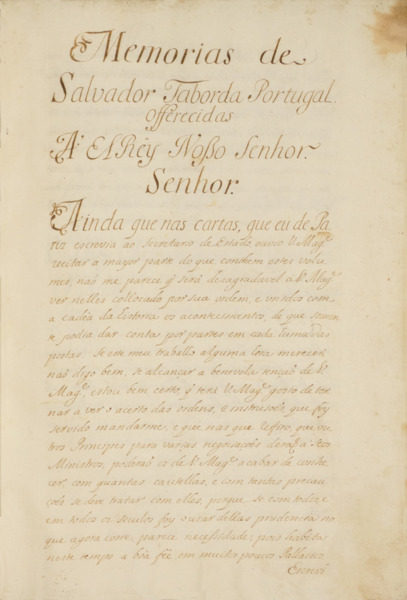 Memorias de
Salvador Taborda Portugal.
offerecidas
A' ElRey Noßo Senhor.
Senhor.
Ainda que nas cartas, que eu de Pa
riz escrevia ao Secretario de Estado, ouvio V. Mag.e
recitar a mayor parte do que contem estes volu
mes, não me parece q̃ será desagradavel a V. Mag.e
ver nelles collocado por sua ordem, e unidos com
a cadêa da historia os acontecimentos, de que
se podia dar conta por partes em cada huma das
postas. Se este meu trabalho alguma cousa merecer
nas digo bem, se alcançar a benevola tenção de V.
Mag.e, estou bem certo, q̃ terá V. Mag.e gosto de tor
nar a ver o acerto das ordens, e instrucões, que foy
servido mandarme, e que nas que refiro, que ou
tros Principes para varias negociações derão a seos
Ministros, poderão os de V. Mag.e acabar de conhe
cer, com quantas cautellas, e com tantas precau
ções se deve tratar com elles, porque se com todos, e
em todos os seculos foy o uzar dellas prudencia no
que agora corre, parece necessidade; pois habita
neste tempo a bôa fee em muito poucos Pallacios.